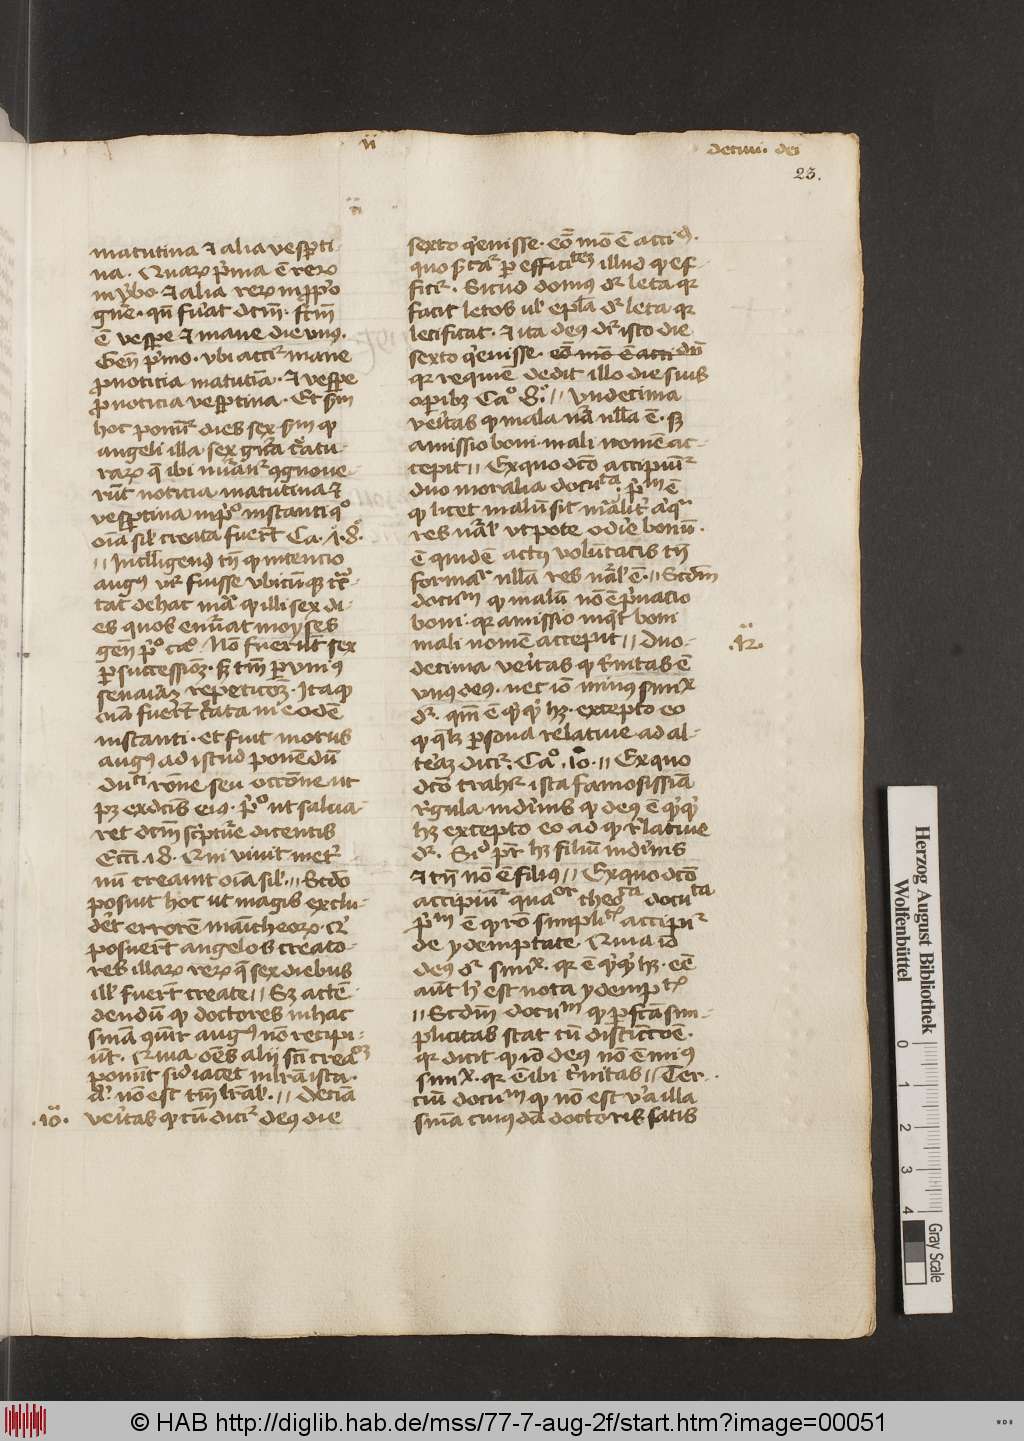 de ciui. dei
23.
matutina et alia vesperti
na. Quarum prima est rerum
in verbo et alia rerum in proprio
genere. quod fuerat dictum. factum
est vespere et mane dies unus.
Gen primo. ubi accipitur mane
pro noticia matutina. et vespere
pro noticia vespertina. Et secundum
hoc ponuntur dies sex secundum quod
angeli illa sex genera creatu
rarum que ibi numerantur cognove
runt noticia matutina et
vespertina in primo instanti quo
omnia simul creata fuerunt
Intelligendum tamen quod intencio
augustini videtur fuisse
tat de hac materia quod illi sex di
es quos enumerat moyses
gen primo non fuerunt sex
per successionem. sed tantum per unius
senariam repeticionem. Itaque
omnia fuerunt creata in eodem
instanti. et fuit motus
augustinus ad istud ponendum
ratione seu occasione ut
patet ex dictis eius. primo ut salua
ret dictum scripture dicentis
Ecci. 18. Qui vivit in eter
num creavit omnia simul. Secundo
posuit hoc ut magis exclu
deret errorem manicheorum qui
posuerunt angelos creato
res illarum rerum que sex diebus
ille fuerunt create Sed atten
dendum quod doctores in hac
sententia communiter augustinum non recipi
unt. Quia omnes alii sancti
ponunt sicut iacet in littera ista
non est Decima
.10.
veritas quod cum dicitur deus die
sexto quievisse.
quo significatur per efficientem illud quod ef
ficitur. Sicud domus dicitur leta quia
facit letos vel epistola dicitur leta quia
letificat. et ita deus dicitur isto die
sexto quievisse.
quia requiem dedit illo die suis
operibus Ca 8. Undecima
veritas quod mala natura nulla est. sed
amissio boni mali nomen ac
cepit Ex quo dicto accipiuntur
duo moralia documenta. primum est
quod licet malum sit
res naturalis utpote odire bonum.
est quidem actus voluntatis tamen
nulla res naturalis est. Secundum
documentum quod malum non est privacio
boni. quia amissio inquit boni
mali nomen accepit Duo
.12.
decima veritas quod trinitas est
unus deus. nec ideo minus simplex
dicitur. quoniam est quidquid habet. excepto eo
quod quelibet persona relative ad al
teram dicitur. Ca. 10. Ex quo
dicto trahitur ista famosissima
regula in divinis quod deus est quidquid
habet excepto eo ad quod relative
dicitur. Sicut pater habet filium in divinis
et tamen non est filius Ex quo dicto
accipiuntur quatuor theologica documenta
primum est quod ratio simplicitatis accipitur
de ydemptitate Quia ideo
deus dicitur simplex. quia est quidquid habet. esse
autem hoc est nota ydemptitatis
Secundum documentum quod perfecta sim
plicitas stat cum distinctione.
quia dicit quod ideo deus non est minus
simplex. quia est ibi trinitas Ter
cium documentum quod non est vera illa
sententia cuiusdam doctoris satis
Herzog August Bibliothek
Wolfenbüttel
0 1 2 3 4
Gray Scale
© HAB http://diglib.hab.de/mss/77-7-aug-2f/start.htm?image=00051